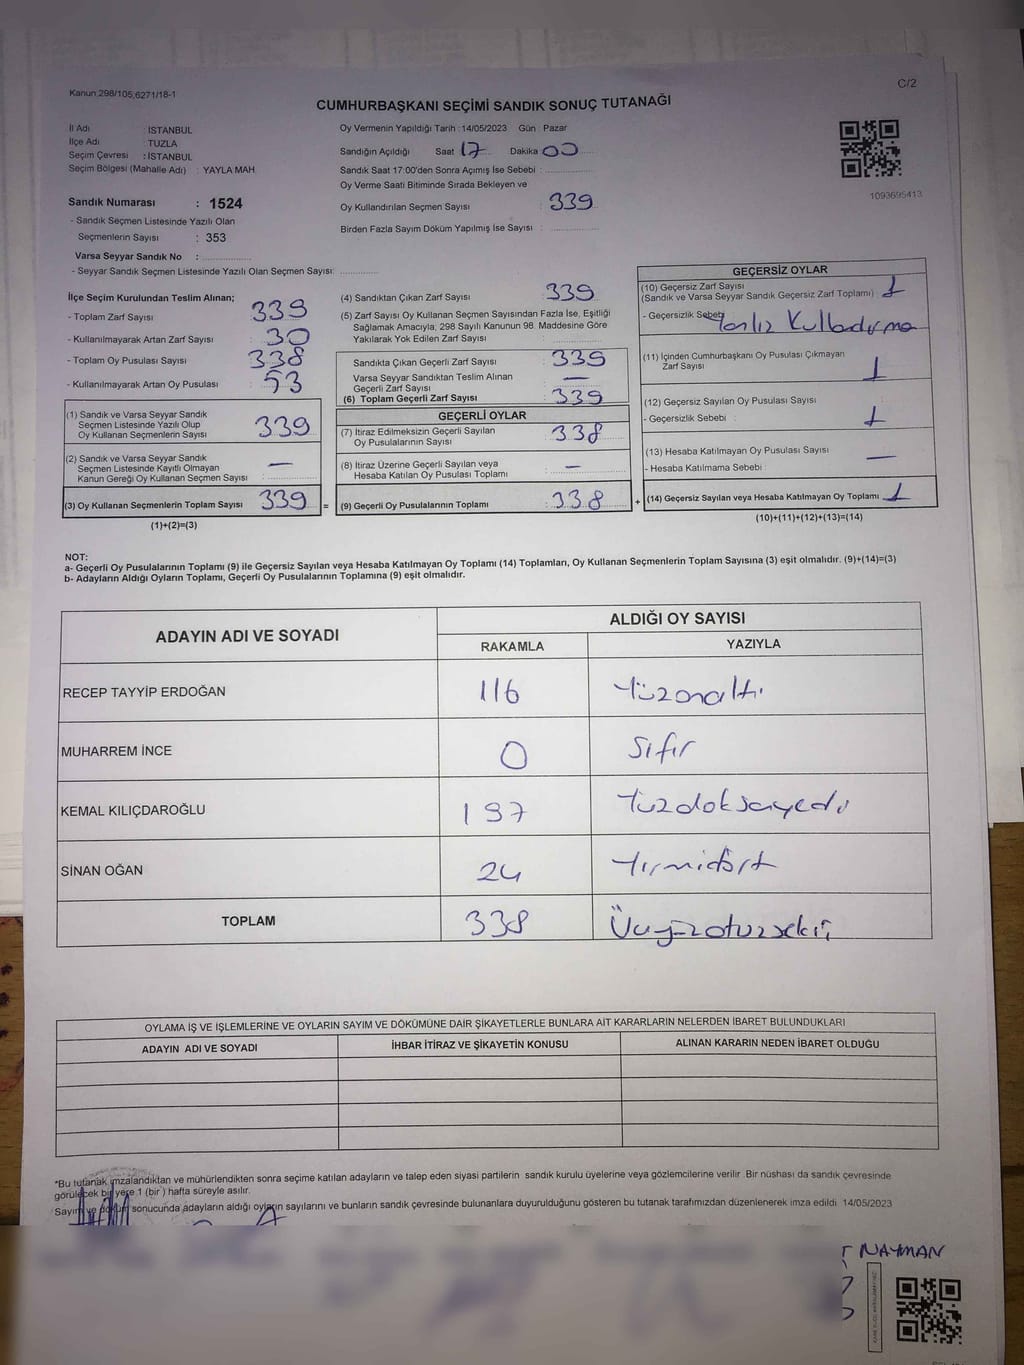 Kanun;298/105,6271/18-1
C/2
CUMHURBAŞKANI SEÇİMİ SANDIK SONUÇ TUTANAĞI
İl Adı : İSTANBUL
İlçe Adı : TUZLA
Seçim Çevresi : İSTANBUL
Seçim Bölgesi (Mahalle Adı) : YAYLA MAH
Sandık Numarası : 1524
- Sandık Seçmen Listesinde Yazılı Olan
Seçmenlerin Sayısı : 353
Varsa Seyyar Sandık No :
- Seyyar Sandık Seçmen Listesinde Yazılı Olan Seçmen Sayısı:
Oy Vermenin Yapıldığı Tarih :14/05/2023 Gün : Pazar
Sandığın Açıldığı Saat 17 Dakika 00
Sandık Saat 17:00'den Sonra Açımış İse Sebebi :
Oy Verme Saati Bitiminde Sırada Bekleyen ve
Oy Kullandırılan Seçmen Sayısı : 339
Birden Fazla Sayım Döküm Yapılmış İse Sayısı :
1093695413
İlçe Seçim Kurulundan Teslim Alınan;
- Toplam Zarf Sayısı : 339
- Kullanılmayarak Artan Zarf Sayısı : 30
- Toplam Oy Pusulası Sayısı : 338
- Kullanılmayarak Artan Oy Pusulası : 53
(1) Sandık ve Varsa Seyyar Sandık
Seçmen Listesinde Yazılı Olup
Oy Kullanan Seçmenlerin Sayısı 339
(2) Sandık ve Varsa Seyyar Sandık
Seçmen Listesinde Kayıtlı Olmayan
Kanun Gereği Oy Kullanan Seçmen Sayısı : —
(3) Oy Kullanan Seçmenlerin Toplam Sayısı 339 =
(1)+(2)=(3)
(4) Sandıktan Çıkan Zarf Sayısı : 339
(5) Zarf Sayısı Oy Kullanan Seçmen Sayısından Fazla İse, Eşitliği
Sağlamak Amacıyla, 298 Sayılı Kanunun 98. Maddesine Göre
Yakılarak Yok Edilen Zarf Sayısı :
Sandıkta Çıkan Geçerli Zarf Sayısı : 339
Varsa Seyyar Sandıktan Teslim Alınan
Geçerli Zarf Sayısı : —
(6) Toplam Geçerli Zarf Sayısı : 339
GEÇERLİ OYLAR
(7) İtiraz Edilmeksizin Geçerli Sayılan
Oy Pusulalarının Sayısı : 338
(8) İtiraz Üzerine Geçerli Sayılan veya
Hesaba Katılan Oy Pusulası Toplamı : —
(9) Geçerli Oy Pusulalarının Toplamı : 338 +
GEÇERSİZ OYLAR
(10) Geçersiz Zarf Sayısı
(Sandık ve Varsa Seyyar Sandık Geçersiz Zarf Toplamı) : 1
- Geçersizlik Sebebi Yanlız Kullandırma
(11) İçinden Cumhurbaşkanı Oy Pusulası Çıkmayan
Zarf Sayısı 1
(12) Geçersiz Sayılan Oy Pusulası Sayısı
- Geçersizlik Sebebi : 1
(13) Hesaba Katılmayan Oy Pusulası Sayısı —
- Hesaba Katılmama Sebebi :
(14) Geçersiz Sayılan veya Hesaba Katılmayan Oy Toplamı 1
(10)+(11)+(12)+(13)=(14)
NOT:
a- Geçerli Oy Pusulalarının Toplamı (9) ile Geçersiz Sayılan veya Hesaba Katılmayan Oy Toplamı (14) Toplamları, Oy Kullanan Seçmenlerin Toplam Sayısına (3) eşit olmalıdır. (9)+(14)=(3)
b- Adayların Aldığı Oyların Toplamı, Geçerli Oy Pusulalarının Toplamına (9) eşit olmalıdır.
ADAYIN ADI VE SOYADI
ALDIĞI OY SAYISI
RAKAMLA YAZIYLA
RECEP TAYYİP ERDOĞAN 116 Yüzonaltı
MUHARREM İNCE 0 Sıfır
KEMAL KILIÇDAROĞLU 197 Yüzdoksanyedi
SİNAN OĞAN 24 Yirmidört
TOPLAM 338 Üçyüzotuzsekiz
OYLAMA İŞ VE İŞLEMLERİNE VE OYLARIN SAYIM VE DÖKÜMÜNE DAİR ŞİKAYETLERLE BUNLARA AİT KARARLARIN NELERDEN İBARET BULUNDUKLARI
ADAYIN ADI VE SOYADI İHBAR İTİRAZ VE ŞİKAYETİN KONUSU ALINAN KARARIN NEDEN İBARET OLDUĞU
*Bu tutanak imzalandıktan ve mühürlendikten sonra seçime katılan adayların ve talep eden siyasi partilerin sandık kurulu üyelerine veya gözlemcilerine verilir. Bir nüshası da sandık çevresinde
görülecek bir yere 1 (bir ) hafta süreyle asılır.
Sayım ve döküm sonucunda adayların aldığı oyların sayılarını ve bunların sandık çevresinde bulunanlara duyurulduğunu gösteren bu tutanak tarafımızdan düzenlenerek imza edildi 14/05/2023
NAYMAN